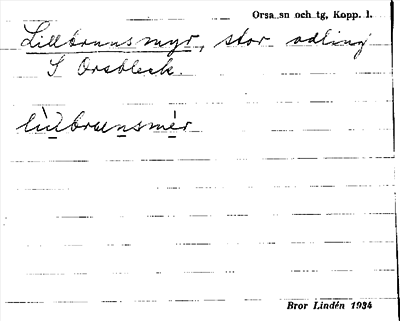 Orsa sn och tg, Kopp. l.
Lillbrunsmyr, stor odling
S Orsbleck.
lìlbrunsmér
Bror Lindén 1934